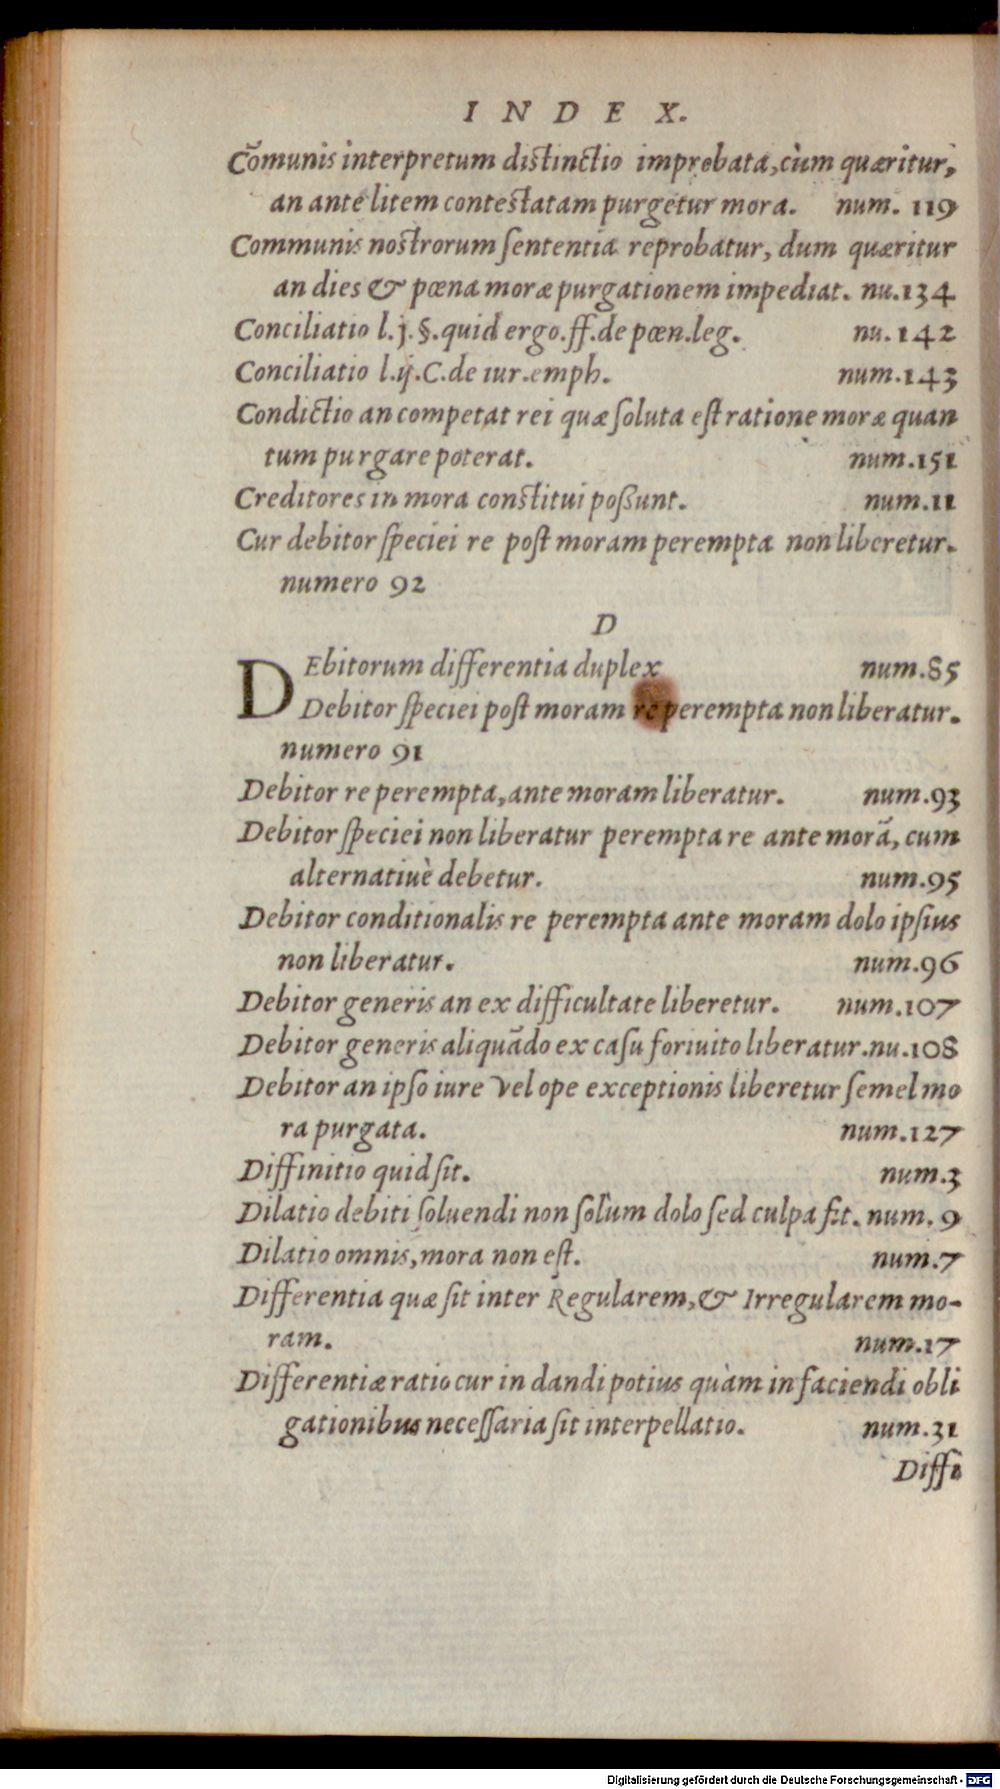 INDEX.
Cõmunis interpretum distinctio improbata, cùm quæritur,
an ante litem contestatam purgetur mora. num. 119
Communis nostrorum sententia reprobatur, dum quæritur
an dies & pœna moræ purgationem impediat. nu.134
Conciliatio l.j.§.quid ergo.ff.de pœn.leg. nu.142
Conciliatio l.ij.C.de iur.emph. num.143
Condictio an competat rei quæ soluta est ratione moræ quan
tum purgare poterat. num.151
Creditores in mora constitui poßunt. num.11
Cur debitor speciei re post moram perempta non liberetur.
numero 92
D
DEbitorum differentia duplex num.85
Debitor speciei post moram re perempta non liberatur.
numero 91
Debitor re perempta, ante moram liberatur. num.93
Debitor speciei non liberatur perempta re ante morã, cum
alternatiuè debetur. num.95
Debitor conditionalis re perempta ante moram dolo ipsius
non liberatur. num.96
Debitor generis an ex difficultate liberetur. num.107
Debitor generis aliquãdo ex casu foriuito liberatur.nu.108
Debitor an ipso iure vel ope exceptionis liberetur semel mo
ra purgata. num.127
Diffinitio quid sit. num.3
Dilatio debiti soluendi non solùm dolo sed culpa fit. num. 9
Dilatio omnis, mora non est. num.7
Differentia quæ sit inter Regularem, & Irregularem mo-
ram. num.17
Differentiæ ratio cur in dandi potius quàm in faciendi obli
gationibus necessaria sit interpellatio. num.31
Diffi
Digitalisierung gefördert durch die Deutsche Forschungsgemeinschaft - DFG